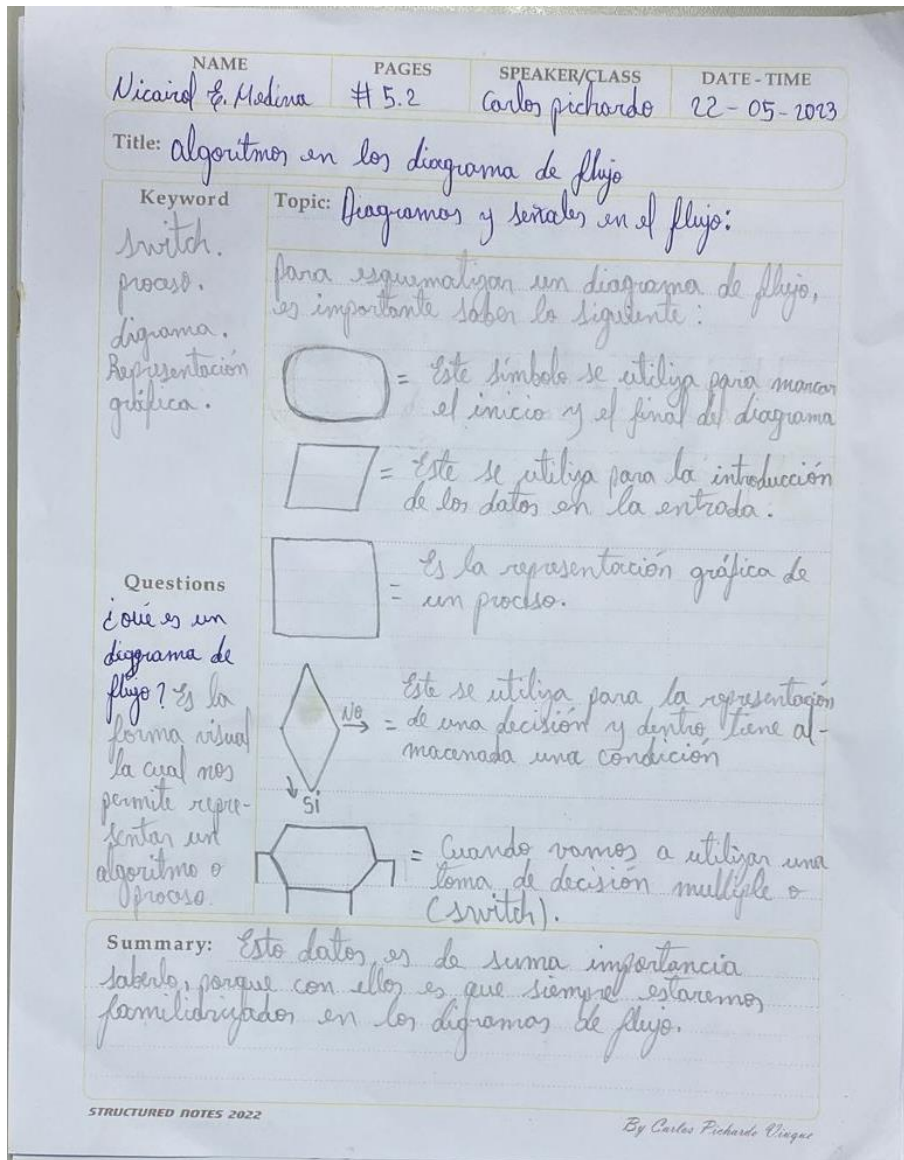 NAME
Nicairol E. Medina
PAGES
# 5.2
SPEAKER/CLASS
Carlos pichardo
DATE - TIME
22 - 05 - 2023
Title: algoritmos en los diagrama de flujo
Keyword
switch.
proceso.
digrama.
Representación
gráfica.
Topic: Diagramas y señales en el flujo:
para esquematizar un diagrama de flujo,
es importante saber lo siguiente:
= Este símbolo se utiliza para marcar
el inicio y el final del diagrama
= Este se utiliza para la introducción
de los datos en la entrada.
= Es la representación gráfica de
un proceso.
No
Si
Este se utiliza para la representación
= de una decisión y dentro tiene al-
macenada una condición
= Cuando vamos a utilizar una
toma de decisión multiple o
(switch).
Questions
¿Qué es un
digrama de
flujo? Es la
forma visual
la cual nos
permite repre-
sentar un
algoritmo o
proceso.
Summary: Esto datos, es de suma importancia
saberlo, porque con ellos es que siempre estaremos
familidrizados en los digramas de flujo.
STRUCTURED NOTES 2022
By Carlos Pichardo Vinque